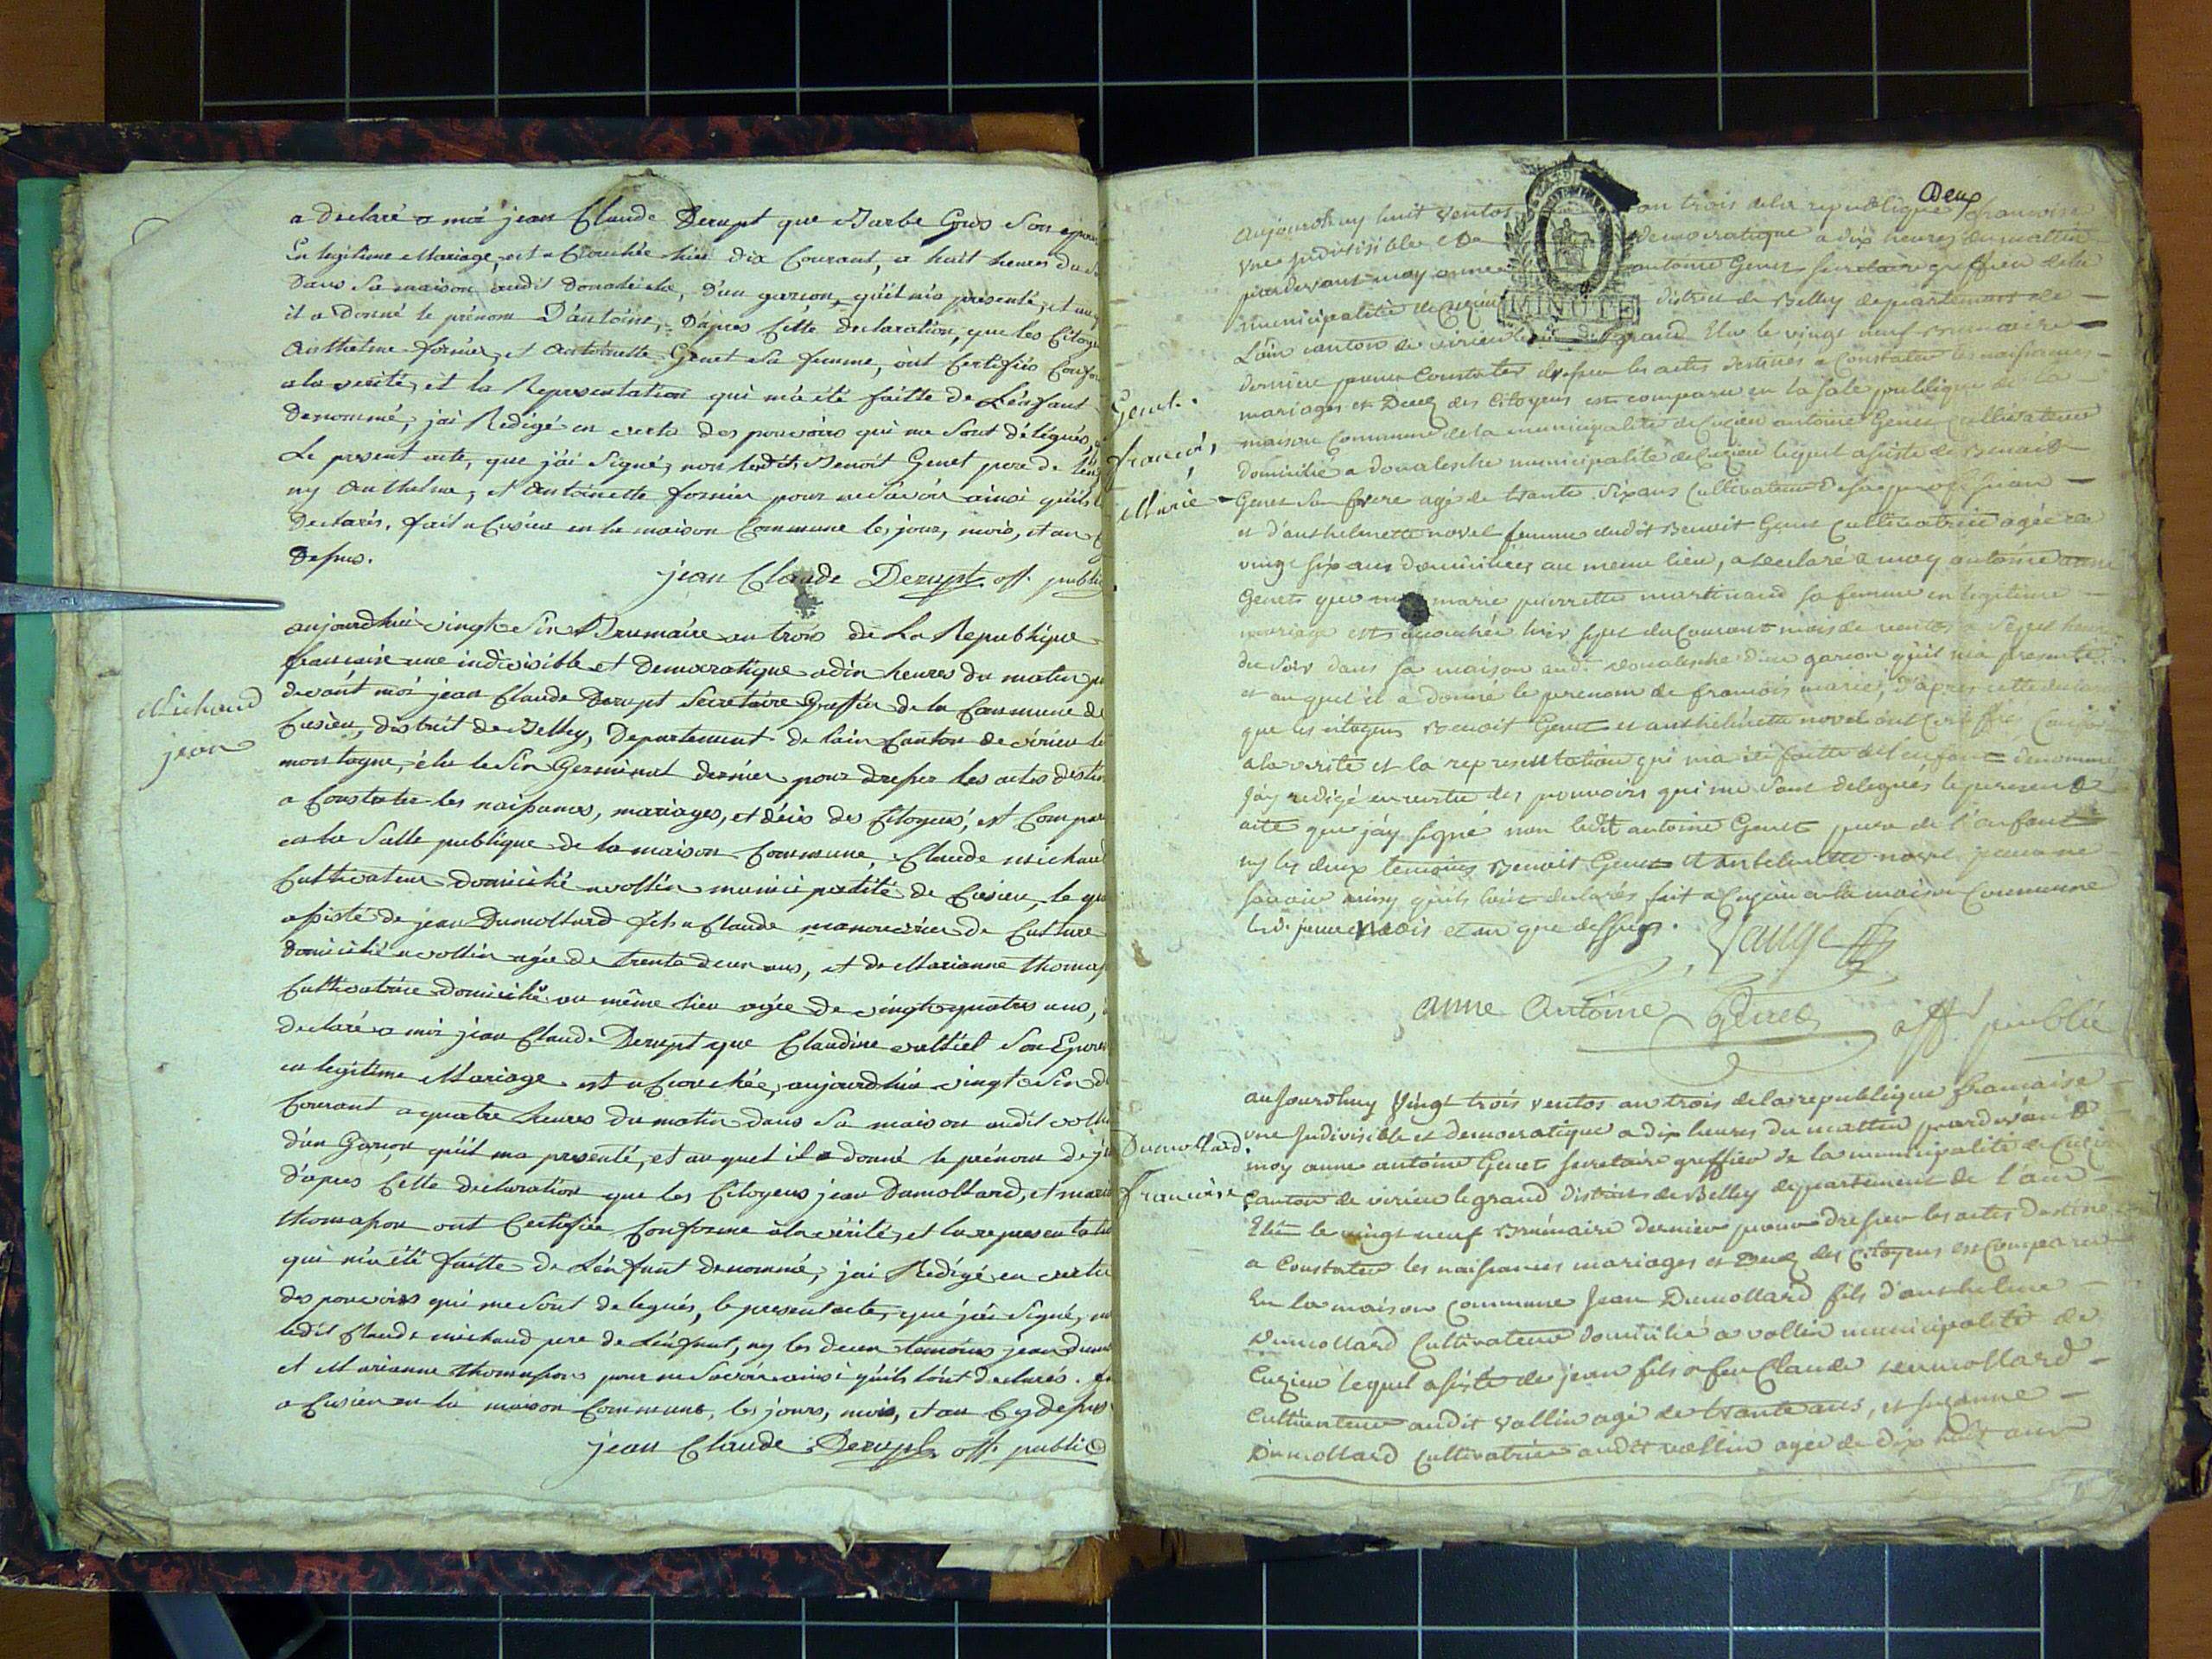 a declaré a moi jean Claude Derupt que Barbe Gros Son epous
En legitime Mariage, est accouchée hier dix Courant, a huit heures du
Dans Sa maison audit Donalèche, d'un garçon, qu'il m'a presenté, et auq
il a Donné le prénom D'antoine, D'apres Cette declaration, que les Citoye
Anthelme fornier, et Antoinette Genet Sa femme, ont Certifiés Confor
a la verité, et la Representation qui m'a été faitte de Lénfant
Denommé, jai Redigé en vertu des pouvoirs qui me Sont délégués,
Le present acte, que j'ai Signé, non ledit Benoit Genet pere de l'én
ny Anthelme, et Antoinette fornier pour ne Savoir ainsi qu'ils
Declarés, fait a Cusieu en la maison Commune les jour, mois, et an
Dessus.
jean Claude Derupt off. public
Michaud
jean
aujourdhui vingt Six Brumaire an trois de La Republique
francaise une indivisible et Democratique a dix heures du matin
devant moi jean Claude Derupt Secretaire Greffier de la Commune de
Cusieu, district de Belley, Departement de lain Canton de virieu le
montagne, élu le Six Germinal dernier pour dresser les actes destin
a Constater les naissances, mariages, et décès des Citoyens, est Compar
en la Salle publique de la maison Commune, Claude michaud
Cultivateur domicilié a vollin municipalité de Cusieu, le qu
assisté de jean Dumollard fils a Claude manouvrier de Culture
domicilié a vollin agé de trente deux ans, et de Marianne thomass
Cultivatrice domicilié au même lieu agée de vingt quatre ans,
declaré a moi jean Claude Derupt que Claudine Son Epouse
en legitime Mariage est accouchée, aujourdhui vingt Six d
Courant a quatre heures du matin dans Sa maison audit vollin
d'un Garçon qu'il ma presenté, et au quel il a donné le prénom de j
d'apres Cette declaration que les Citoyens jean Dumollard, et maria
thomasson ont Certifiée Conforme a la vérité, et la representation
qui m'a été faitte de Lénfant denommé, jai Redigé en vertu
des pouvoirs qui me Sont delegués, le present acte, que j'ai Signé, non
ledit Claude michaud pere de Lénfant, ny les deux temoins jean dumol
et Marianne thomasson pour ne Savoir ainsi qu'ils lont declarés. f
a Cusieu en la maison Commune, les jours, mois, et an Cy dessus
jean Claude Derupt off. public
Deux
Genet.
francois
Marie
aujourdhuy huit ventos an trois de la republique francoise
une jndivisible e De democratique a dix heures du mattin
pardevant moy anne antoine Genet secretaire greffier de la
municipalité de Cuzieu district de Belley departement de
L'ain canton de virieu le grand Elu le vingt neuf Brumaire
dernier pour Constater dresser les actes destinés a Constater les naissances
mariages et Deces des Citoyens est comparu en la sale publique de la
maison Commune de la municipalité de Cuzieu antoine Genet Cultivateur
domicilié a donalesche municipalité de Cuzieu lequel assisté de Benoit
Genet Son frere agé de trante Six ans Cultivateur
et d'anthelmette novel femme dudit Benoit Genet Cultivatrice agée de
vingt Six ans domiciliées au meme lieu, a declaré a moy antoine anne
Genet que marie pierrette martinand sa femme en legitime
mariage est accouchée hier sept du Courant mois de ventos a sept heures
du Soir dans sa maison aud. donalesche d'un garcon qu'il m'a presenté
et auquel il a donné le prenom de francois marie, d'apres cette declara
que les citoyens Benoit Genet et anthelmette novel ont Certiffiés Confor
a la verité et la representation qui m'a été faitte de l'enfant denommé
J'ay redigé en vertu des pouvoirs qui me Sont delegués le present
acte que j'ay signé non ledit antoine Genet pere de l'enfant
ny les deux temoins Benoit Genet et anthelmette novel pour ne
savoir ainsy qu'ils l'ont declarés fait a Cuzieu a la maison Commune
les d. jour Mois et an que dessus.
anne Antoine Genet off. public
Dumollard.
francoise
aujourdhuy vingt trois ventos an trois de la republique francaise
une Jndivisible et democratique a dix heures du mattin pardevant
moy anne antoine Genet secretaire greffier de la municipalité de Cuzieu
Canton de virieu le grand district de Belley departement de l'ain
Elu le vingt neuf Brumaire dernier pour dresser les actes destiné
a Constater les naissances mariages et Deces des Citoyens est Comparu
En la maison Commune Jean Dumollard fils d'anthelme
Dumollard Cultivateur domicilié a vollin municipalité de
Cuzieu lequel assisté de jean fils a feu Claude dumollard
Cultivateur audit vollin agé de trante ans, et suzanne
Dumollard Cultivatrice audit vollin agée de dix huit ans